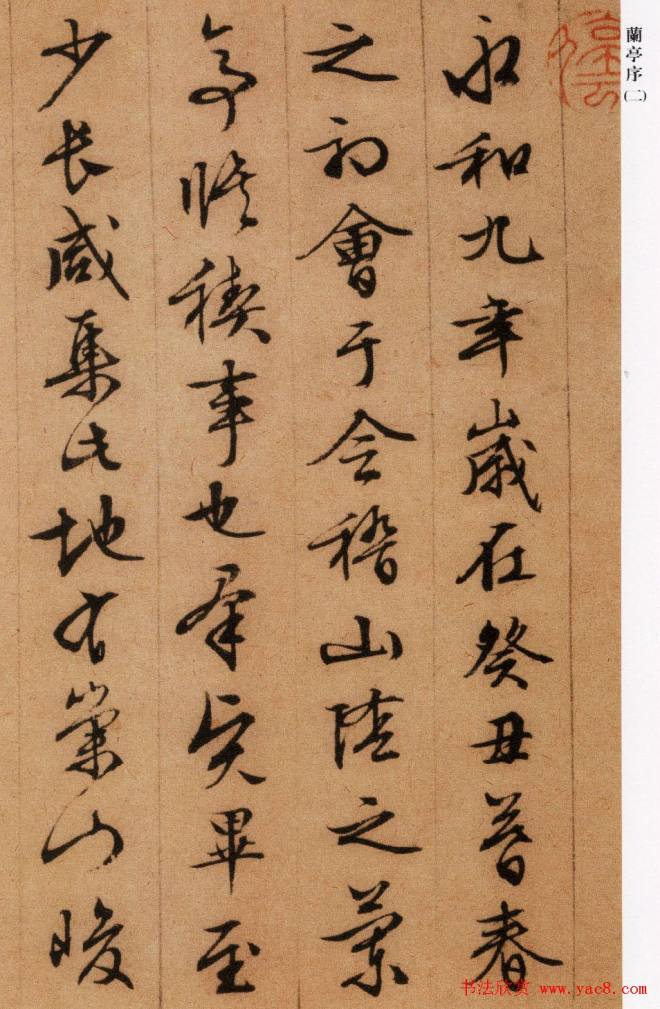 蘭亭序(二)
永和九年歲在癸丑暮春
之初會于会稽山陰之蘭
亭脩稧事也羣賢畢至
少長咸集此地有崇山峻
书法欣赏 www.yac8.com